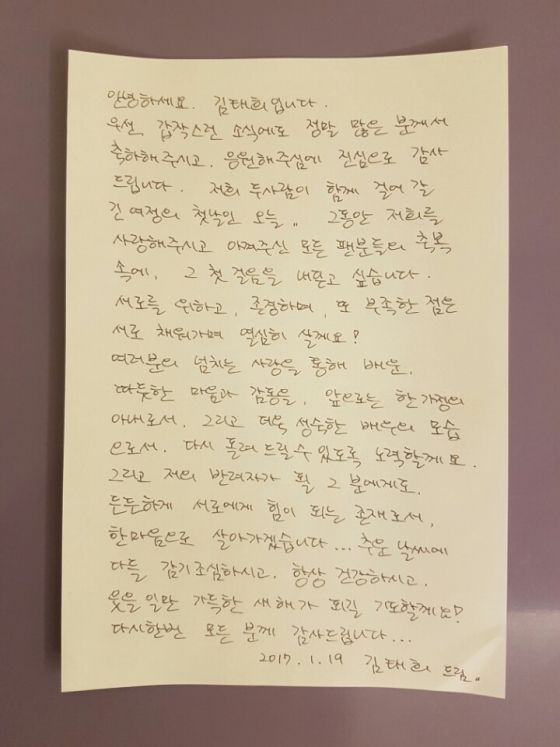 안녕하세요. 김태희입니다.
우선, 갑작스런 소식에도 정말 많은 분께서
축하해주시고, 응원해주심에 진심으로 감사
드립니다. 저희 두사람이 함께 걸어 갈
긴 여정의 첫날인 오늘.. 그동안 저희를
사랑해주시고 아껴주신 모든 팬분들의 축복
속에, 그 첫 걸음을 내딛고 싶습니다.
서로를 위하고, 존경하며, 또 부족한 점은
서로 채워가며 열심히 살께요!
여러분의 넘치는 사랑을 통해 배운,
따듯한 마음과 감동을, 앞으로는 한 가정의
아내로서, 그리고 더욱 성숙한 배우의 모습
으로서, 다시 돌려 드릴 수 있도록 노력할께요.
그리고 저의 반려자가 될 그 분에게도,
든든하게 서로에게 힘이 되는 존재로서,
한마음으로 살아가겠습니다... 추운 날씨에
다들 감기조심하시고, 항상 건강하시고,
웃을 일만 가득한 새해가 되길 기도할께요!
다시한번 모든 분께 감사드립니다...
2017. 1. 19 김태희 드림..